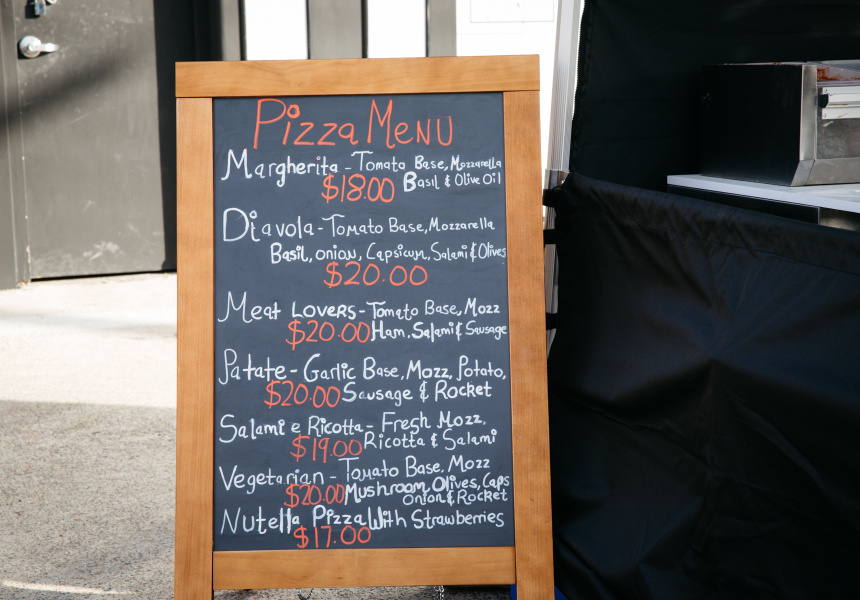 Pizza MENU
Margherita - Tomato Base, Mozzarella
$18.00 Basil & Olive Oil
Diavola - Tomato Base, Mozzarella
Basil, onion, Capsicum, Salami & Olives
$20.00
Meat LOVERS - Tomato Base, Mozz
$20.00 Ham, Salami & Sausage
Patate - Garlic Base, Mozz, Potato,
$20.00 Sausage & Rocket
Salami e Ricotta - Fresh Mozz,
$19.00 Ricotta & Salami
Vegetarian - Tomato Base, Mozz
$20.00 Mushroom, Olives, Caps
onion & Rocket
Nutella Pizza With Strawberries
$17.00